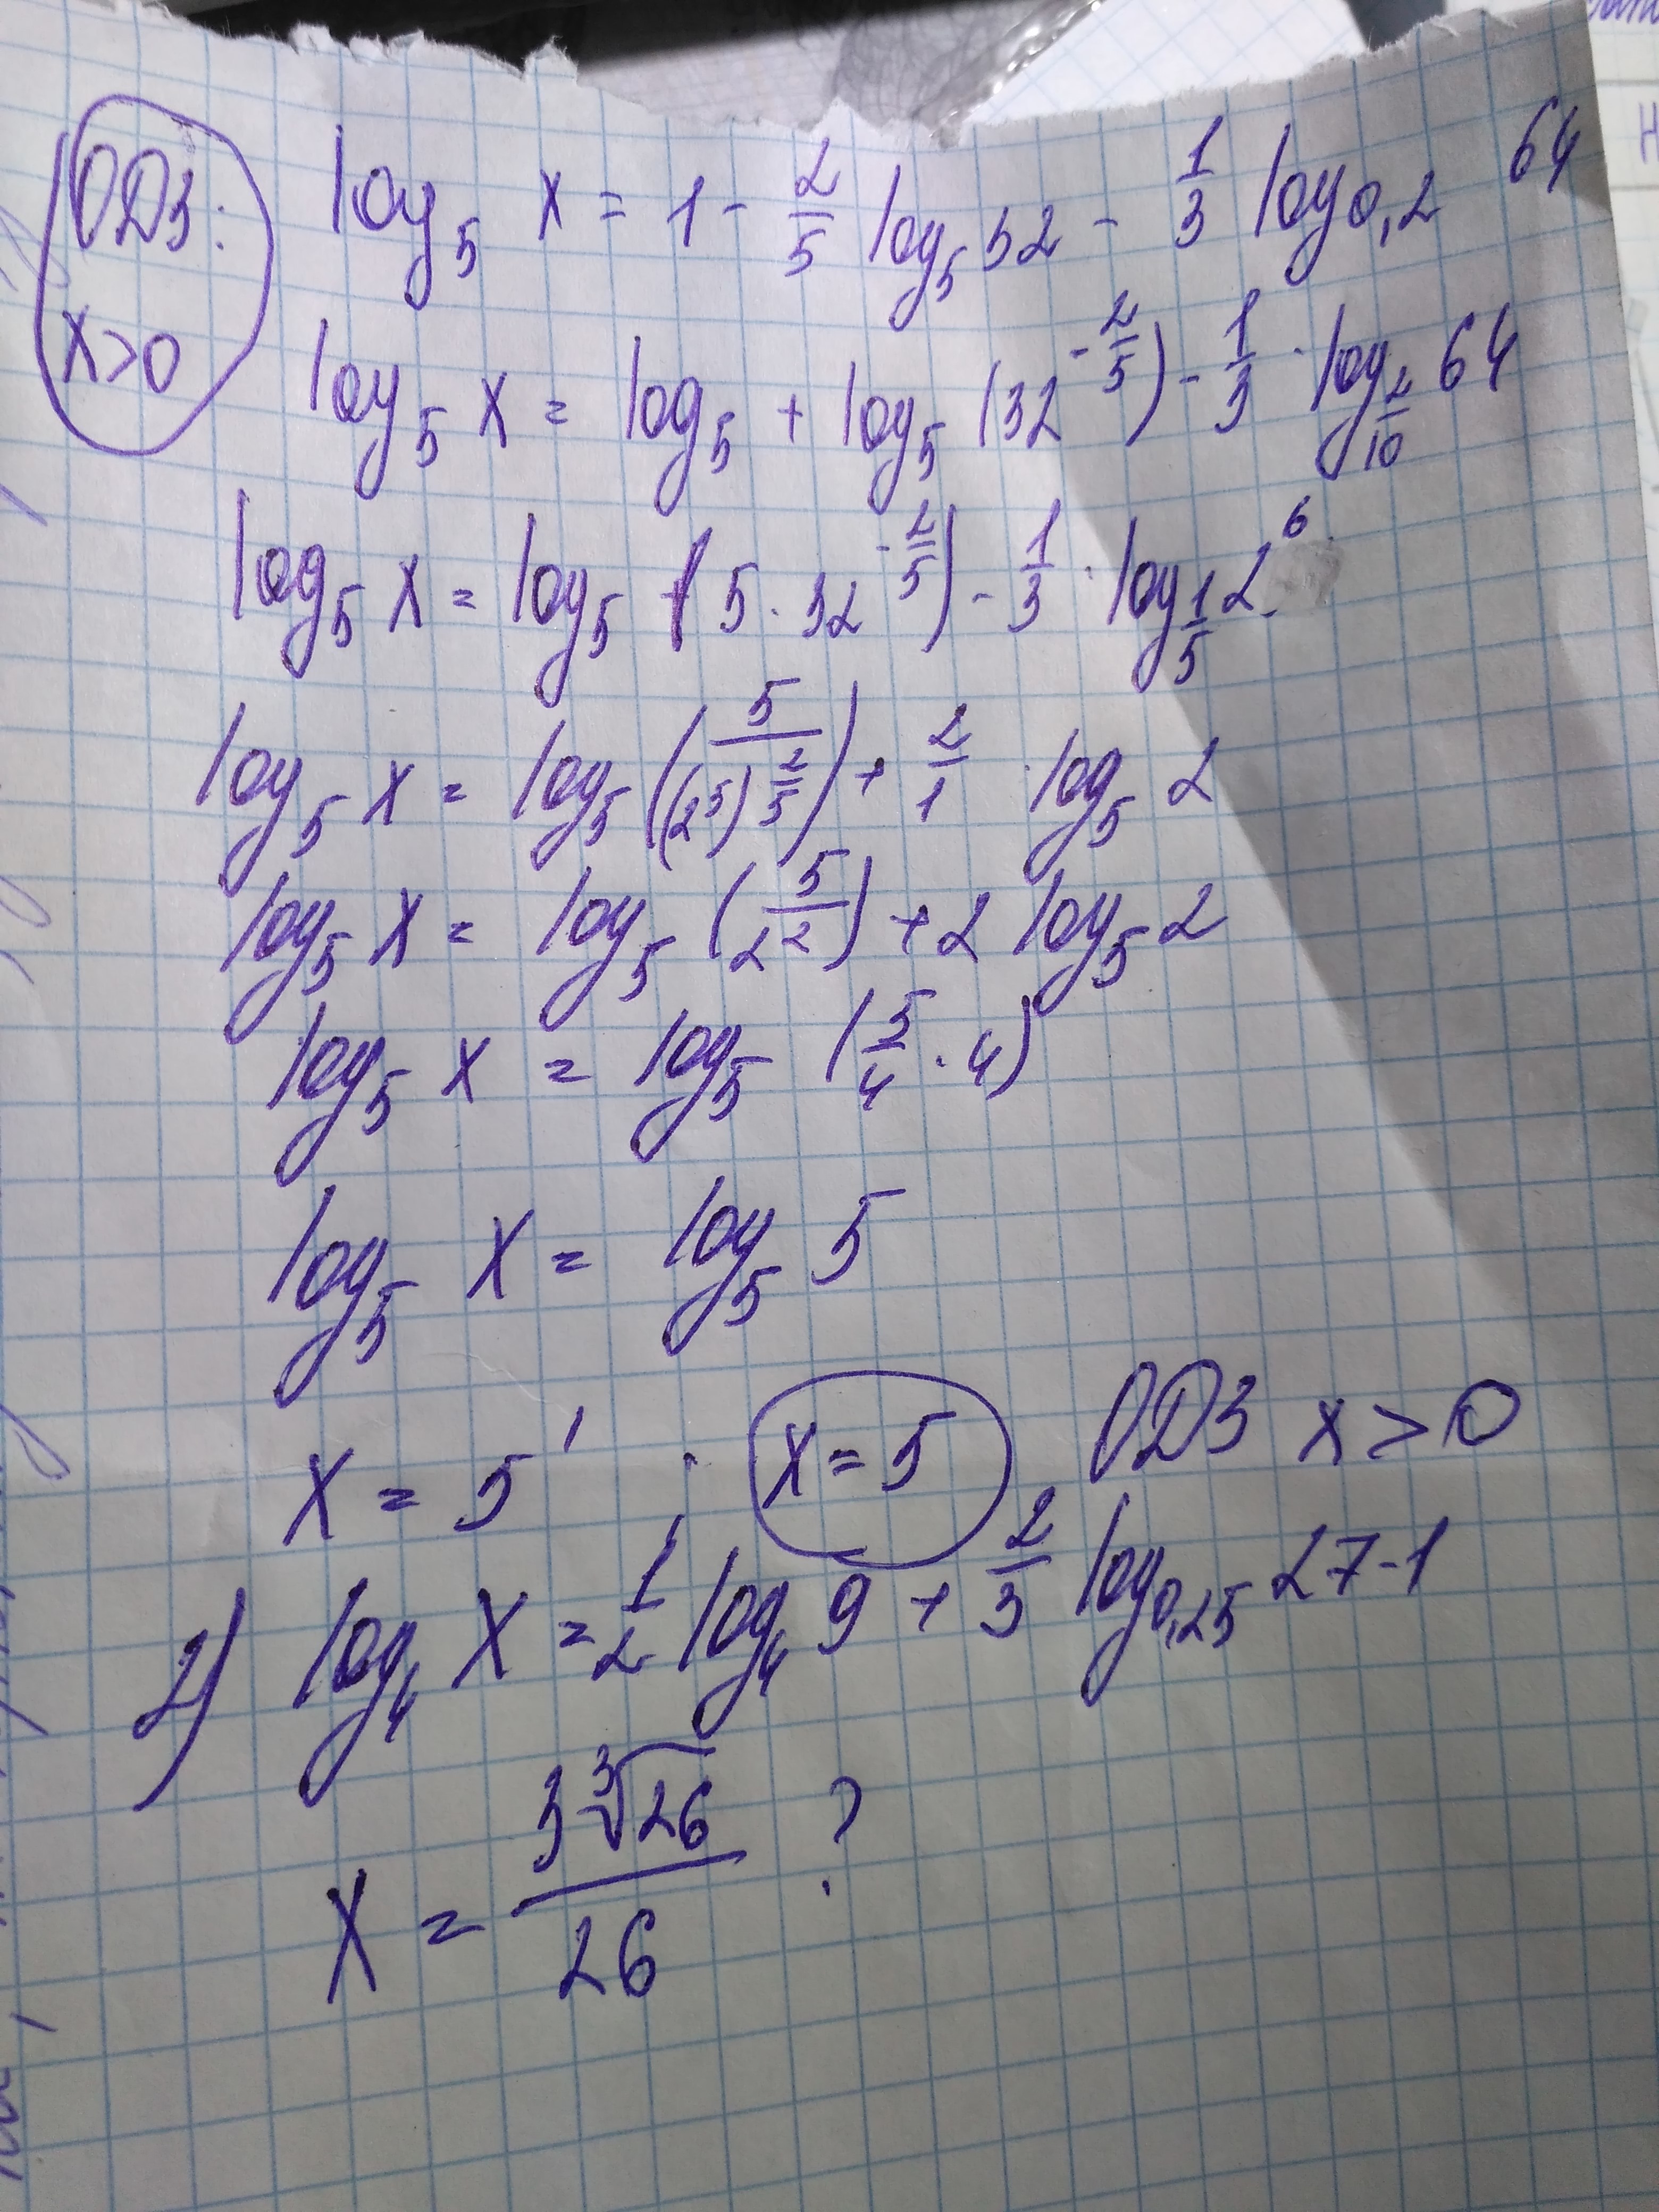 ОДЗ: log₅ x = 1 - 2/5 log₅ 32 - 1/3 log₀,₂ 64
x>0
log₅ x = log₅ + log₅ (32^(-2/5)) - 1/3 · log_(2/10) 64
log₅ x = log₅ (5 · 32^(-2/5)) - 1/3 · log_(1/5) 2⁶
log₅ x = log₅ (5/(2⁵)^(2/5)) + 2/1 · log₅ 2
log₅ x = log₅ (5/2²) + 2 log₅ 2
log₅ x = log₅ (5/4 · 4)
log₅ x = log₅ 5
x = 5¹ ; x = 5 ОДЗ x > 0
2) log₄ x = 1/2 log₄ 9 + 2/3 log₀,₂₅ 27-1
x = 3∛26/26 ?